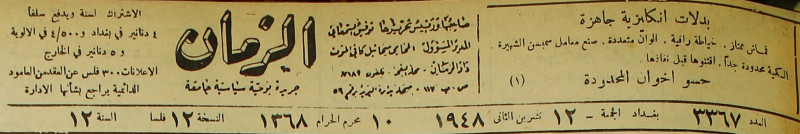 بدلات انكليزية جاهزة
قماش ممتاز. خياطة راقية. الوان متعددة. صنع معامل سمبسن الشهيرة.
الكمية محدودة جداً. اقتنوها قبل نفاذها.
حسو اخوان المحدودة (١)
صاحبها ورئيس تحريرها توفيق السمعاني
المدير المسؤول: المحامي
دار الزمان:
ص. ب ١١٢ -
الزمان
جريدة يومية سياسية جامعة
الاشتراك لسنة ويدفع سلفا
٤ دنانير في بغداد و ٤/٥٠٠ في الالوية
و ٥ دنانير في الخارج
الاعلانات ٣٠٠ فلس عن العقد من العامود
الدائمية يراجع بشأنها الادارة
العدد ٣٣٦٧ بغداد الجمعة – ١٢ تشرين الثاني ١٩٤٨ ١٠ محرم الحرام ١٣٦٨ النسخة ١٢ فلسا السنة ١٢